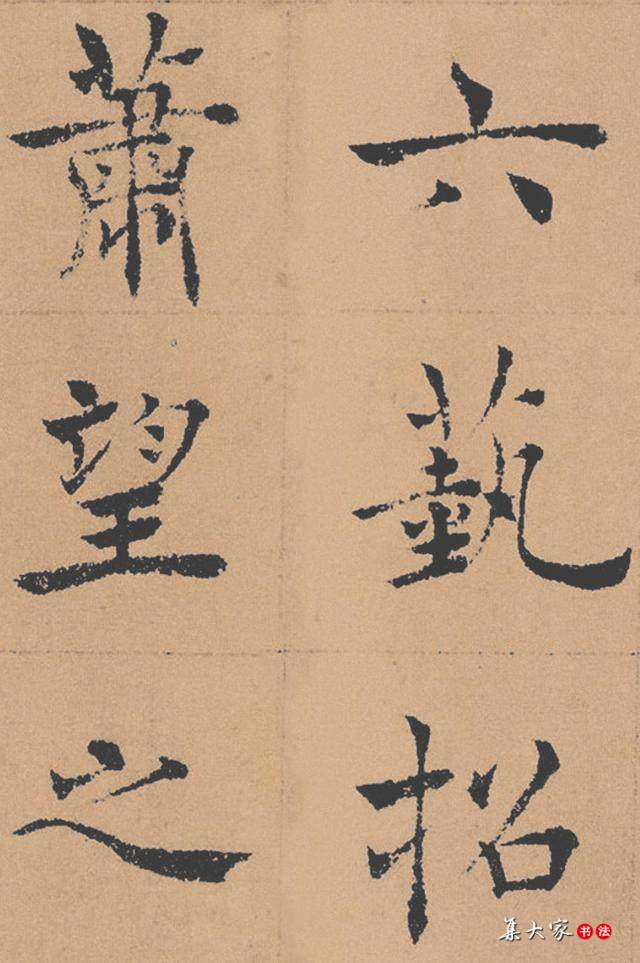 六藝招
蕭望之
集大家书法